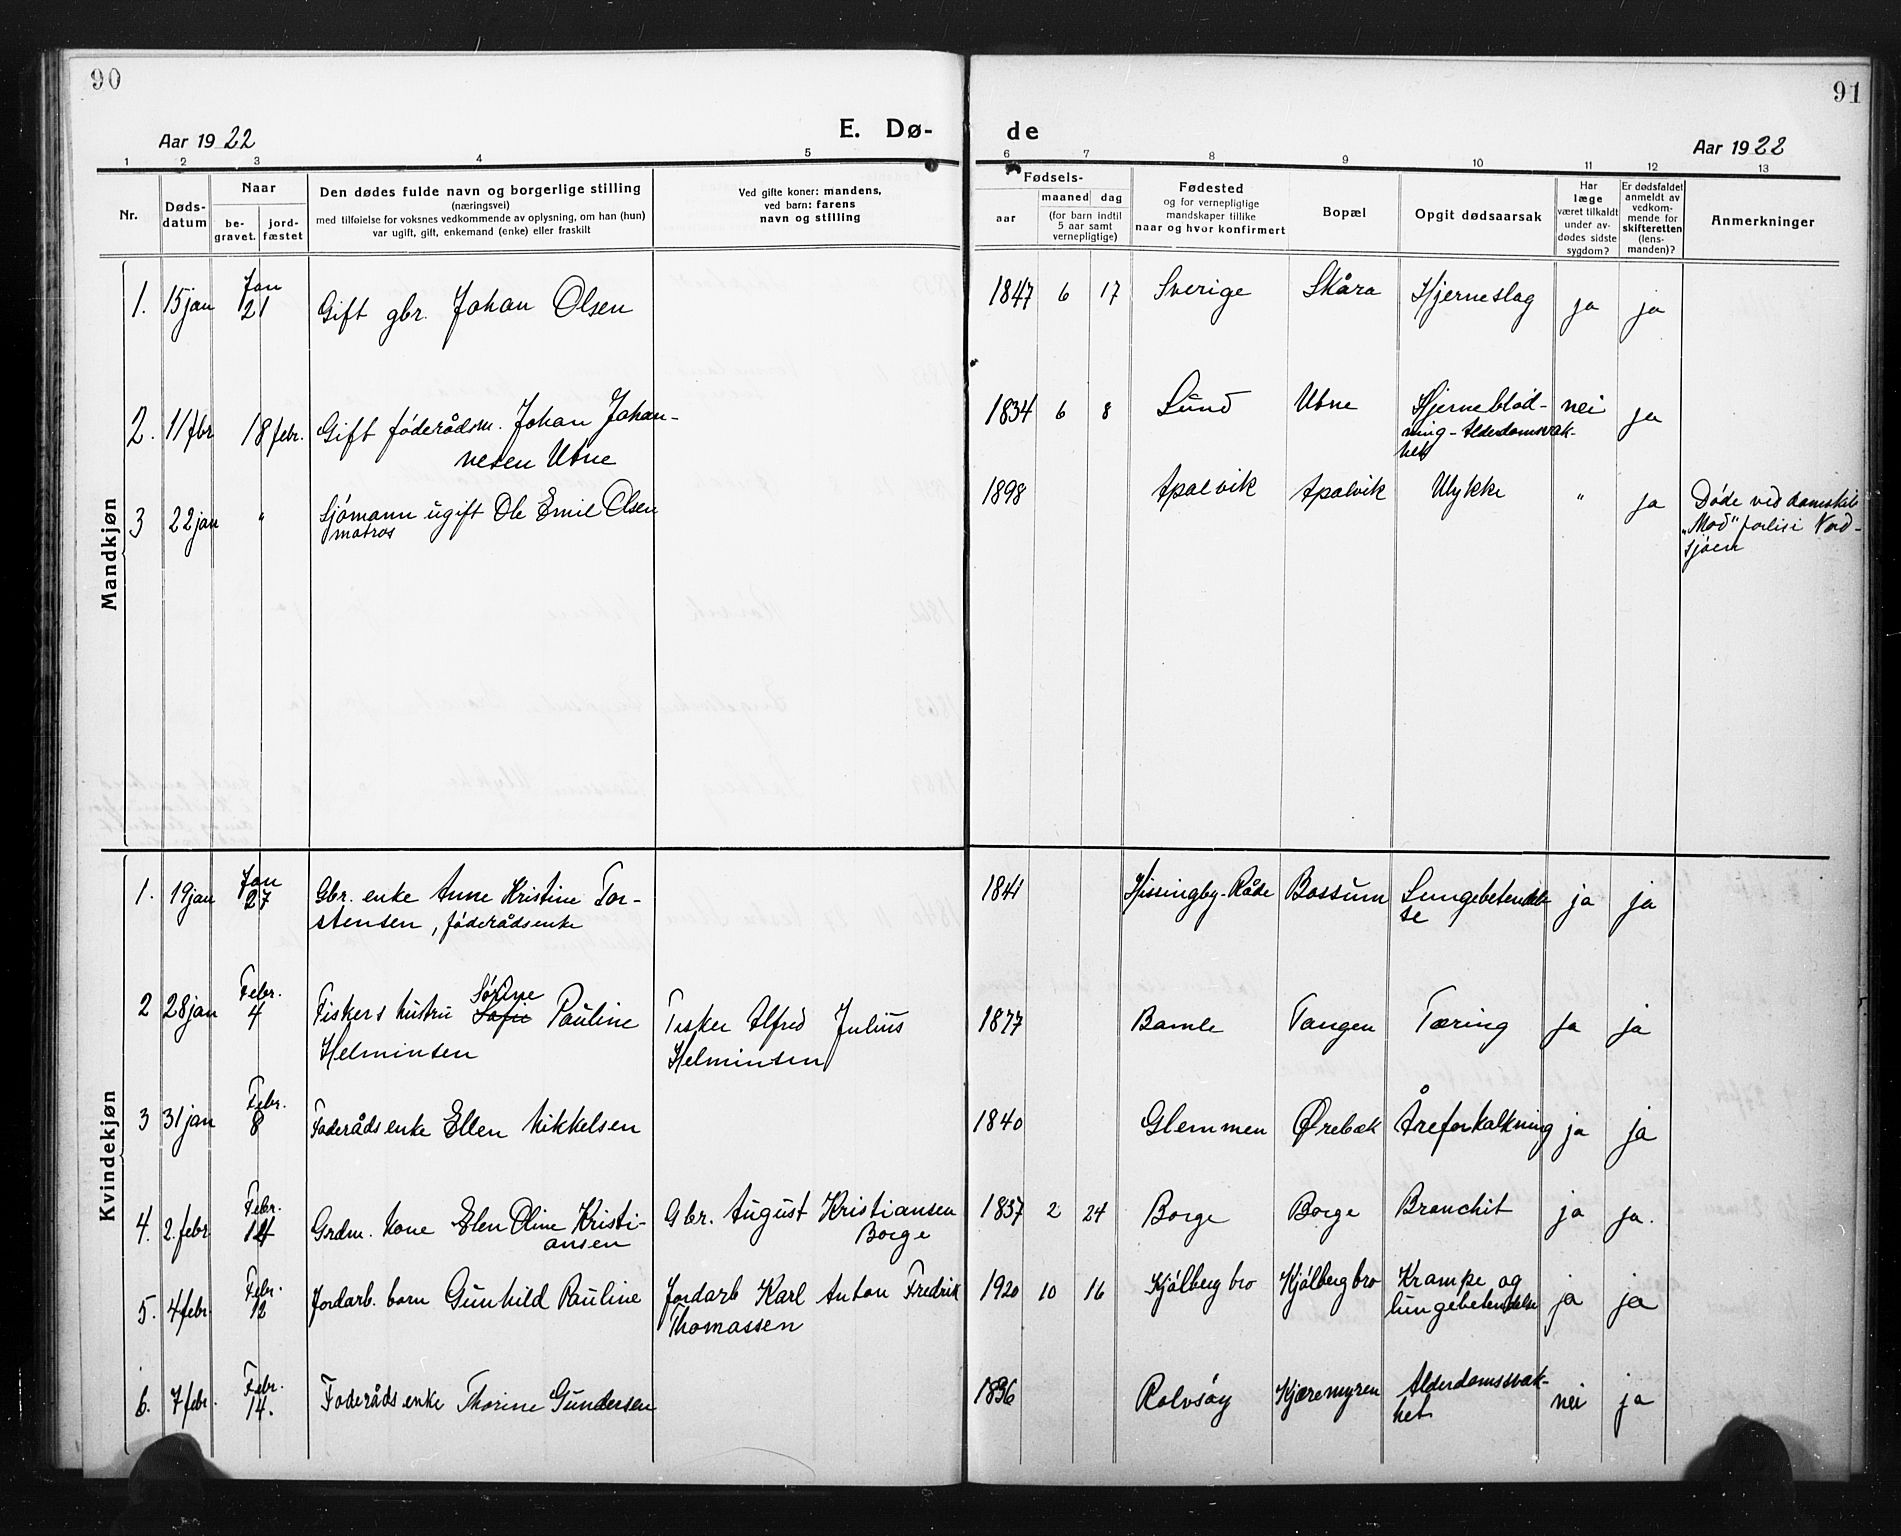 90
91
E. Dø- de
Aar 1922
Aar 1922
1 2 3 4 5 6 7 8 9 10 11 12 13
Nr.
Døds-
datum
Naar
be-
gravet.
jord-
fæstet
Den dødes fulde navn og borgerlige stilling
(næringsvei)
med tilføielse for voksnes vedkommende av oplysning, om han (hun)
var ugift, gift, enkemand (enke) eller fraskilt
Ved gifte koner: mandens,
ved barn: farens
navn og stilling
Fødsels-
aar
maaned
dag
(for barn indtil
5 aar samt
vernepligtige)
Fødested
og for vernepligtige
mandskaper tillike
naar og hvor konfirmert
Bopæl
Opgit dødsaarsak
Har
læge
været tilkaldt
under av-
dødes sidste
sygdom?
Er dødsfaldet
anmeldt av
vedkom-
mende for
skifteretten
(lens-
manden)?
Anmerkninger
Mandkjøn
1. 15 jan Jan 21 Gift gbr. Johan Olsen 1847 6 17 Sverige Skåra Hjerneslag ja ja
2. 11 fbr 18 febr. Gift føderådsm. Johan Johan-
nesen Utne 1834 6 8 Lund Utne Hjerneblød-
ning - Alderdomsvak-
het nei ja
3 22 jan " Sjømann ugift Ole Emil Olsen
matros 1898 Apalvik Apalvik Ulykke " ja Døde ved damskib
"Mod" forlis i Nord-
sjøen
Kvindekjøn
1. 19 jan Jan 27 Gbr. enke Anne Kristine Tor-
stensen, føderådsenke 1841 Hissingby-Råde Bossum Lungebetendel-
se ja ja
2 28 jan Febr. 4 Fiskers hustru Sofie Sørine Pauline
Helminsen Fisker Alfred Julius
Helminsen 1877 Bamle Tangen Tæring ja ja
3 31 jan Febr. 8 Føderåds enke Ellen Mikkelsen 1840 Glemmen Ørebæk Åreforkalkning ja ja
4. 2. febr. Febr. Grdm. kone Elen Oline Kristi-
ansen Gbr. August Kristiansen
Borge 1837 2 24 Borge Borge Bronchit ja ja.
5. 4 febr. Febr. 12 Jordarb. barn Gunhild Pauline Jordarb Karl Anton Fredrik
Thomassen 1920 10 16 Kjølberg bro Kjølberg bro Krampe og
lungebetendelse ja ja
6. 7 febr. Febr. 14. Foderåds enke Thorine Gundersen 1836 Rolvsøy Kjæremyren Alderdomssvak-
het nei ja